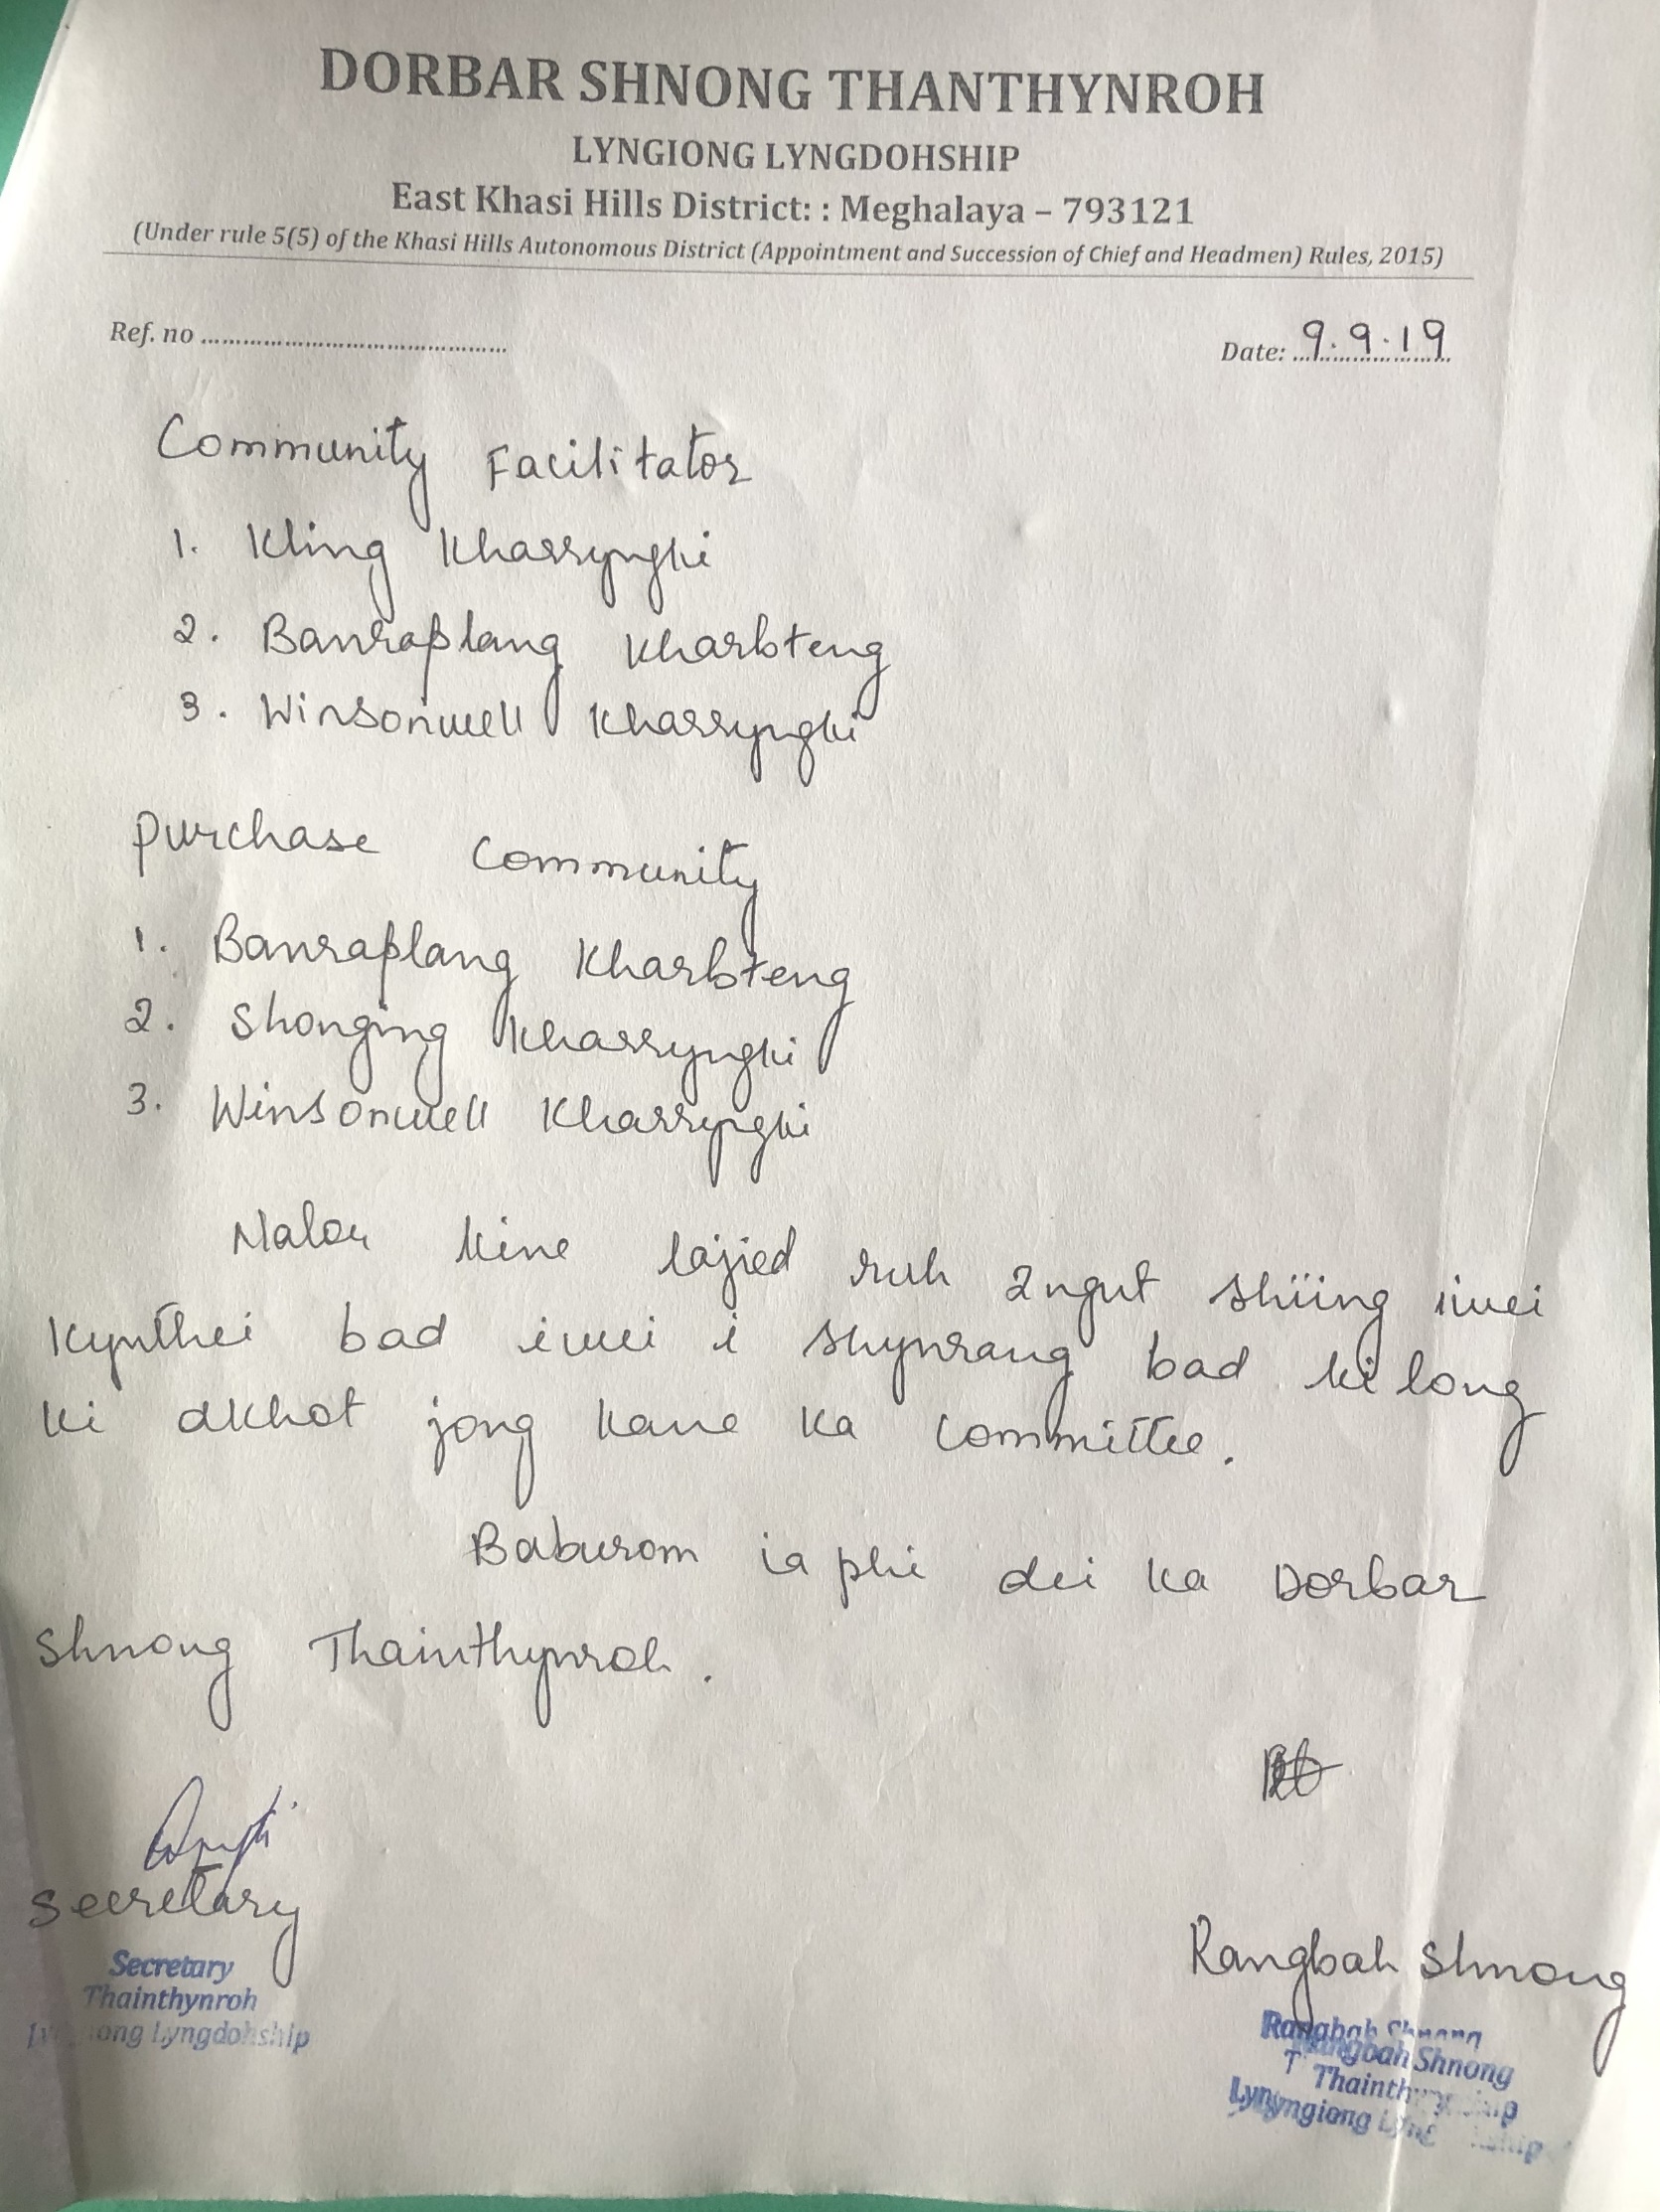 DORBAR SHNONG THANTHYNROH
LYNGIONG LYNGDOHSHIP
East Khasi Hills District: : Meghalaya – 793121
(Under rule 5(5) of the Khasi Hills Autonomous District (Appointment and Succession of Chief and Headmen) Rules, 2015)
Ref. no ............................................ Date: 9.9.19
Community Facilitator
1. Kling Kharryngki
2. Banraplang Kharbteng
3. Winsonwell Kharryngki
Purchase Community
1. Banraplang Kharbteng
2. Shonging Kharryngki
3. Winsonwell Kharryngki
Nalor kine lajied ruh 2ngut shiing iwei
kynthei bad iwei i shynrang bad ki long
ki dkhot jong kane ka Committee.
Baburom ia phi dei ka Dorbar
Shnong Thainthynroh.
Secretary
Secretary
Thainthynroh
Lyngdohship
Rangbah Shnong
Rangbah Shnong
Rangbah Shnong
Lyngiong